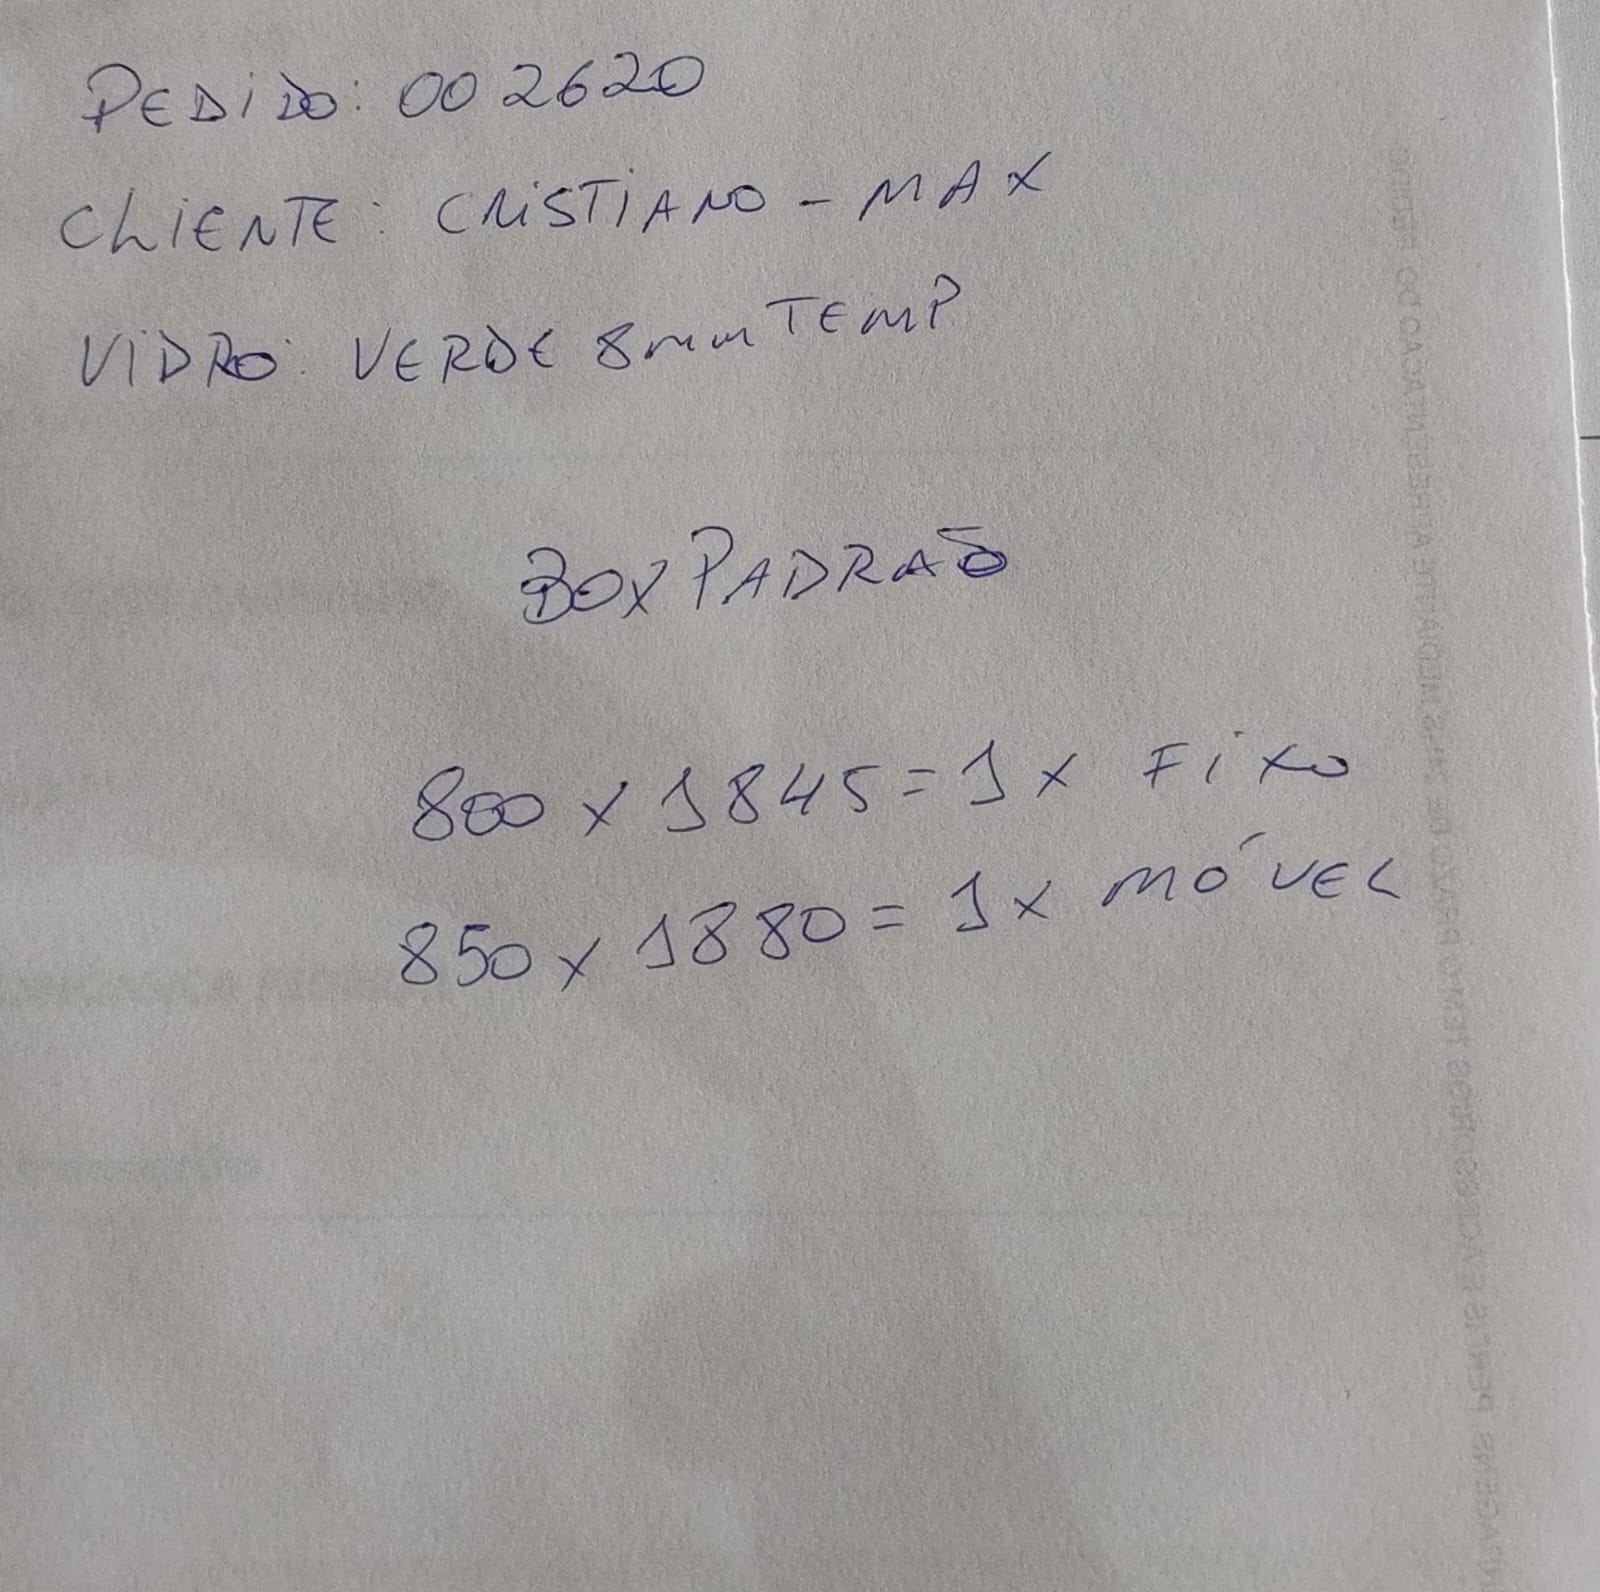 PEDIDO: 002620
CLIENTE: CRISTIANO - MAX
VIDRO: VERDE 8mm TEMP
BOX PADRÃO
800 x 1845 = 1 x FIXO
850 x 1880 = 1 x MÓVEL